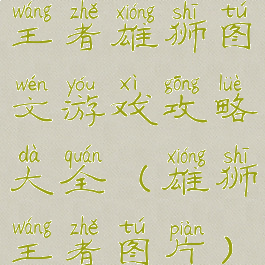 wáng zhě xióng shī tú
王者雄狮图
wén yóu xì gōng luè
文游戏攻略
dà quán xióng shī
大全（雄狮
wáng zhě tú piàn
王者图片）